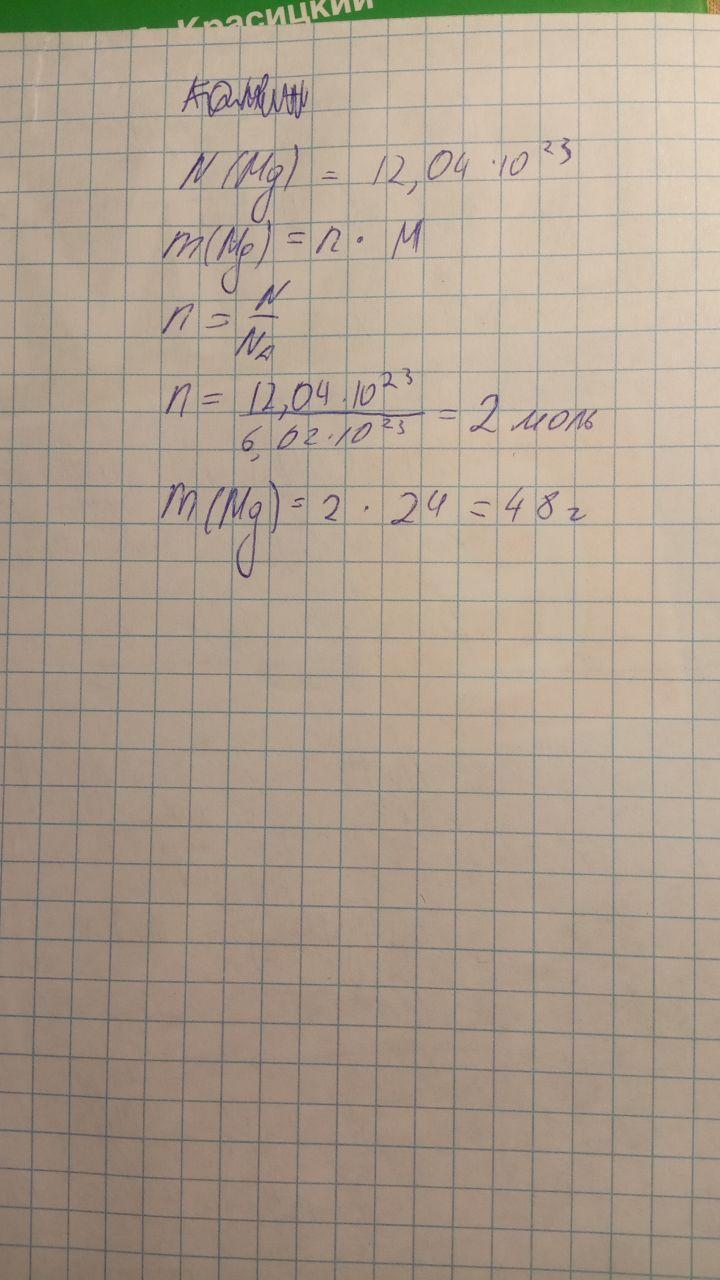 Красицкий
N (Mg) = 12,04 · 10²³
m(Mg) = n · M
n = N/Nₐ
n = 12,04 · 10²³ / 6,02 · 10²³ = 2 моль
m (Mg) = 2 · 24 = 48 г